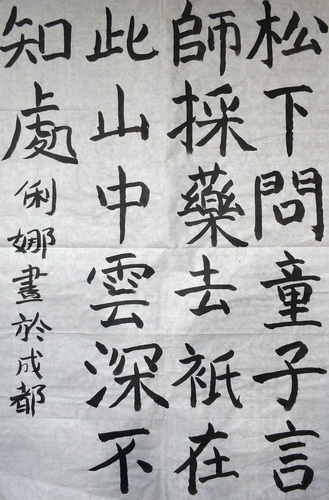 松下問童子言
師採藥去衹在
此山中雲深不
知處
俐娜晝於成都